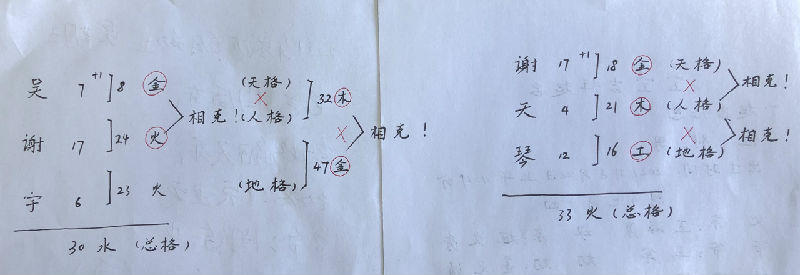 吴 7 +1 ] 8 金
(天格)
] 32 木
相克!
(人格)
谢 17 ] 24 火
相克!
] 47 金
(地格)
宇 6 ] 23 火
30 水 (总格)
谢 17 +1 ] 18 金 (天格)
相克!
天 4 ] 21 木 (人格)
相克!
琴 12 ] 16 土 (地格)
33 火 (总格)